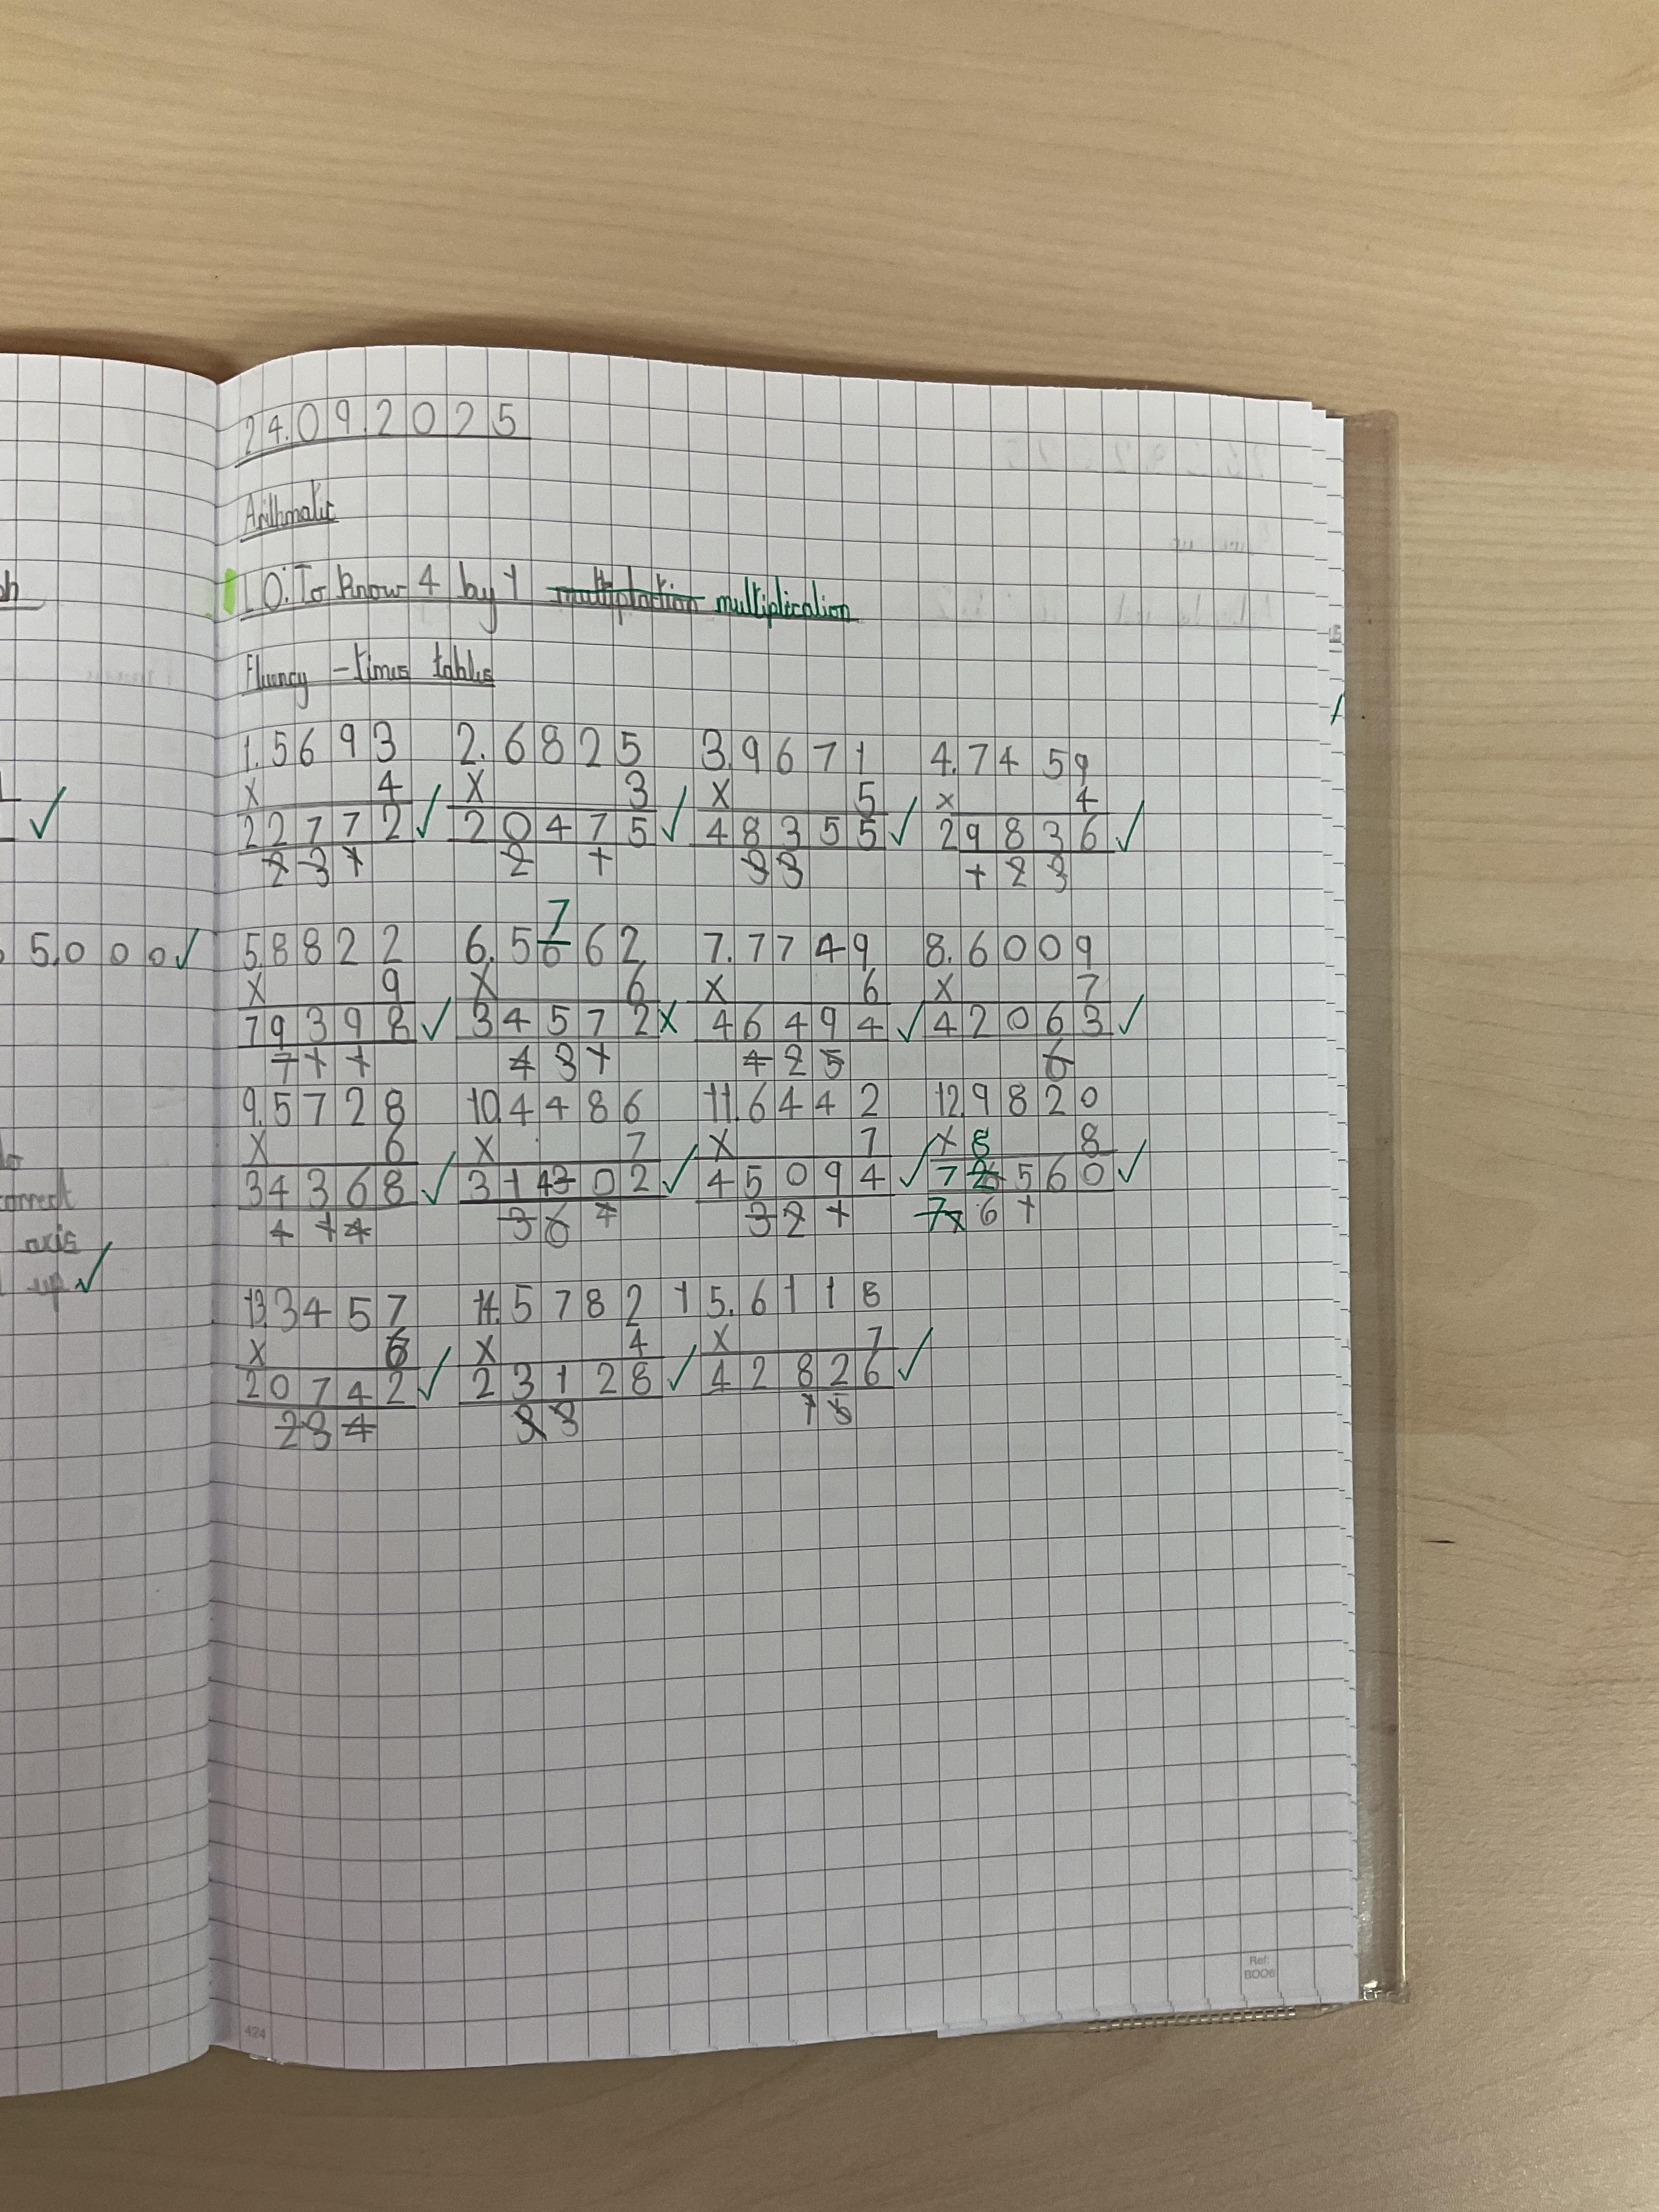 24.09.2025
Arithmatic
LO: To know 4 by 1 multiplaction multiplication
Fluency - times tables
1. 5693 2. 6825 3. 9671 4. 7459
x 4 ✓ x 3 ✓ x 5 ✓ x 4
22772 20475 48355 29836 ✓
2 3 1 2 1 3 3 1 2 3
7
5. 8822 6. 5662 7. 7749 8. 6009
x 9 x 6 x 6 x 7
79398 ✓ 34572 x 46494 ✓ 42063 ✓
7 1 1 4 3 1 4 2 5 6
9. 5728 10. 4486 11. 6442 12. 9820
x 6 x 7 x 7 x 8 8
34368 ✓ 31402 ✓ 45094 ✓ 78560 ✓
4 1 4 3 6 4 3 2 1 7 6 1
13. 3457 14. 5782 15. 6118
x 6 x 4 x 7
20742 ✓ 23128 ✓ 42826 ✓
2 3 4 3 3 1 5
5,000 ✓
correct
axis
up ✓
424
Ref:
BOO6